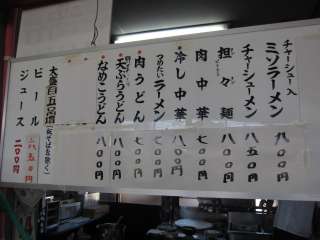 チャーシュー入
ミソラーメン 八〇〇円
チャーシューメン 八五〇円
担々麺 八〇〇円
肉中華 七〇〇円
冷し中華 八〇〇円
つめたいラーメン 七〇〇円
肉うどん 七〇〇円
天ぷらうどん 八〇〇円
なめこうどん 八〇〇円
大盛百五十円増
ビール 六五〇円
ジュース 二〇〇円